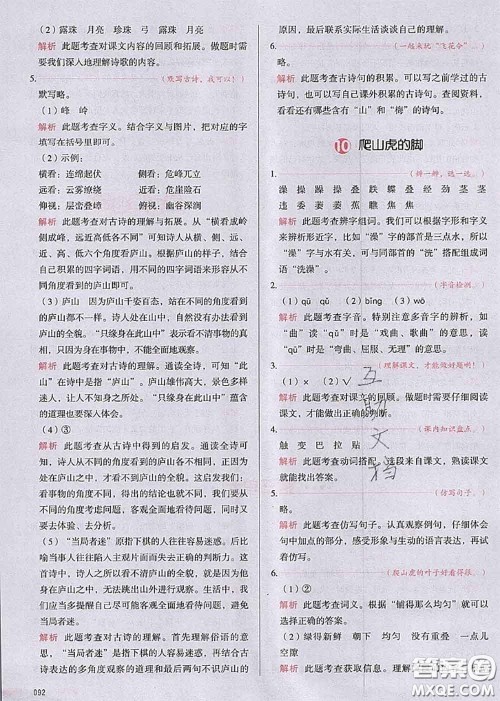 (2) 露珠 月亮 珍珠 弓 露珠 月亮
解析 此题考查对课文内容的回顾和拓展。做此题时需要
我们深入地理解诗歌的内容。
5. (默写古诗,我可以!)
默写略。
(1) 峰 岭
解析 此题考查字义。结合字义与图片,把对应的字
填写在括号里即可。
(2) 示例:
横看:连绵起伏 侧看:危峰兀立
远看:云雾缭绕 近看:危崖险石
仰视:层峦叠嶂 俯视:幽谷深涧
解析 此题考查对古诗的理解与拓展。从“横看成岭
侧成峰,远近高低各不同”可知诗人从横、侧、远、
近、高、低六个角度看庐山。根据所选择的词语,结合
自己积累的四字词语,用不同的四字词语来形容从不
同角度看到的庐山即可。
(3) 庐山 因为庐山千姿百态,站在不同的角度看到
的庐山各不相同,而诗人没有从多角度观察,没有看到
庐山的全貌。“只缘身在此山中”表示看不清事物的真
相,是因为不能全面地观察。
解析 此题考查对古诗的理解。通读全诗,可知“此
山”在诗中是指“庐山”。庐山雄伟高大,景色多姿多
样,让人不知不觉身陷其中。对“只缘身在此山中”蕴
含的道理也要深入体会。
(4) ③
解析 此题考查从古诗中得到的启发。通读全诗可
知,诗人从不同的角度看到的庐山是不一样的,而且诗
人在庐山之中,不能看到庐山的真面目。由此可以看出:
看事物的角度不同,得到的结论也是不一样的。所以,
看事物要从不同的角度、不同的方面进行观察,同时又
要去体验、去分析。
(5) “当局者迷”原指下棋的人往往容易迷惑。后比
喻当事人往往陷入主观片面而缺乏正确的判断力。这
首诗中,诗人身在庐山之中,由于视角的限制,不能全
面地观察庐山,所以看不清庐山的真面目。生活中,我
们应当多角度地观察,才能正确地认识客观事物。
解析 此题考查对古诗的理解。首先理解俗语的意
思,“当局者迷”原指下棋的人往往容易迷惑。再结合
古诗表达的多角度观察的道理和最后两句不识庐山的
092
原因,最后联系实际生活谈谈自己的理解。
6. (一起来玩“飞花令”...)
略。
解析 此题考查古诗句的积累。可以写之前学过的古
诗句,也可以写自己课外积累的古诗句。查阅资料,看
看还有哪些含有“山”和“梅”的诗句。
10 爬山虎的脚
1. (辨一辨,选一选...)
澡 操 躁 操 叠 跌 蝶 经 劲 茎 茎
连 委 萎 萎 萎
解析 此题考查辨字组词。我们可以根据字形和字义
来辨析形近字,比如:“澡”字的部首是三点水,所以
“澡”字与水有关,可与同部首的“洗”搭配组成词语
“洗澡”。
2. (字音检测。)
(2) bǐng
解析 此题考查字音。特别注意多音字的辨析,如
“曲”读
时是“戏曲、歌曲”的意思,读
时是“弯曲、屈服、无理”的意思。
3. (理解课文,才能做好题哟!)
(1) × (2) √
解析 此题考查对课文的掌握。做题时需要仔细阅读
课文,才能做出正确的判断。
4. (课内知识盘点。)
触 变 巴 拉 贴
解析 此题考查动词搭配。选段来自课文,熟读课文
就能找出答案。
5. (仿写句子。)
略。
解析 此题考查仿写句子。认真观察例句,仔细体会
句中加点的部分,感受形象与生动的语言表达方式。
6. (爬山虎的叶子好看得很...)
(1) ②
解析 此题考查词义。根据“铺得那么均匀”就可以
选择正确的词义。
(2) 绿得新鲜 朝下 均匀 没有重叠 一点儿
空隙
解析 此题考查获取信息。理解
互助文档
答案圈
MXQE.COM